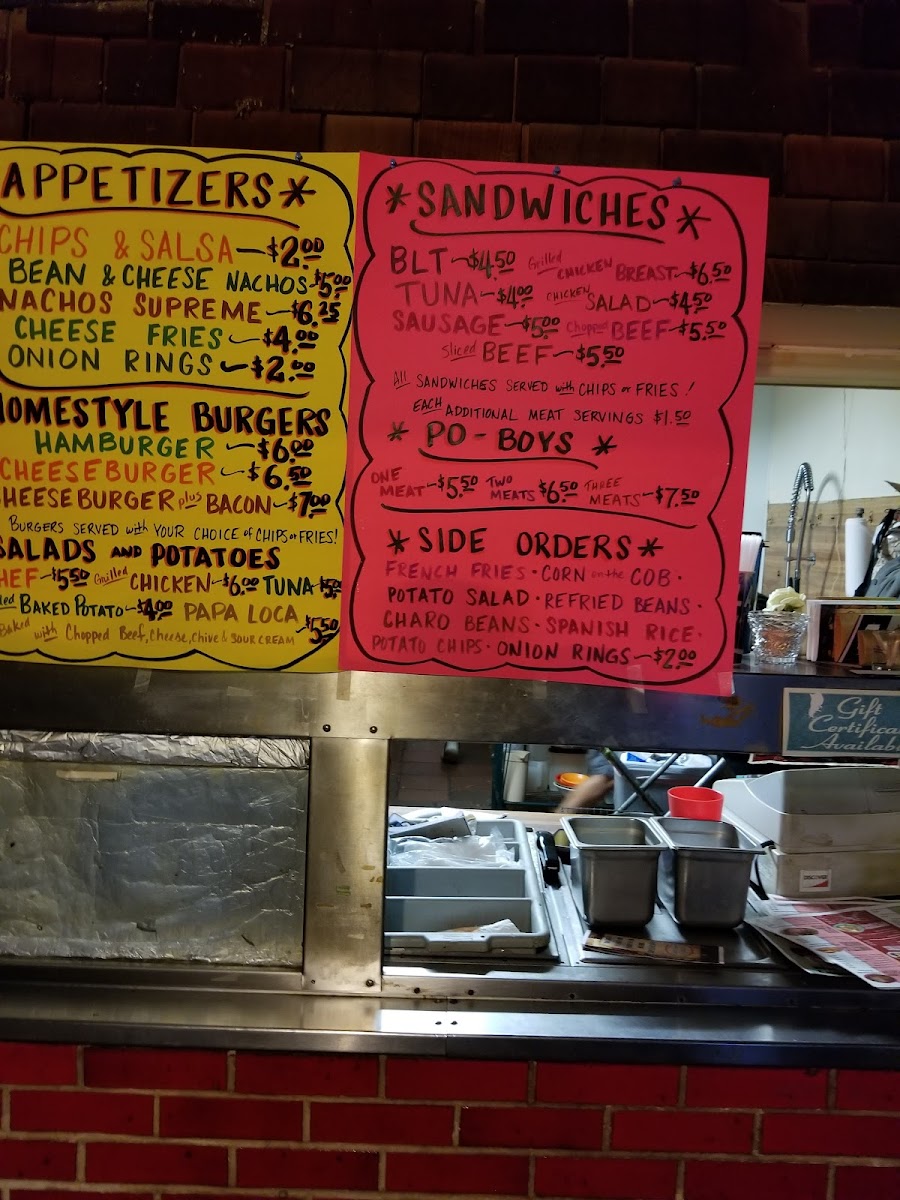 APPETIZERS *
CHIPS & SALSA - $2.00
BEAN & CHEESE NACHOS $5.00
NACHOS SUPREME - $6.25
CHEESE FRIES - $4.00
ONION RINGS - $2.00
HOMESTYLE BURGERS
HAMBURGER - $6.00
CHEESEBURGER - $6.50
CHEESEBURGER plus BACON - $7.00
BURGERS SERVED with YOUR CHOICE of CHIPS or FRIES!
SALADS AND POTATOES
CHEF - $5.50 Grilled CHICKEN - $6.00 TUNA $5.00
BAKED POTATO - $4.00 PAPA LOCA
Baked with Chopped Beef, Cheese, Chive & SOUR CREAM $5.50
* SANDWICHES *
BLT - $4.50 Grilled CHICKEN BREAST - $6.50
TUNA - $4.00 CHICKEN SALAD - $4.50
SAUSAGE - $5.00 Chopped BEEF - $5.50
Sliced BEEF - $5.50
All SANDWICHES SERVED with CHIPS or FRIES!
EACH ADDITIONAL MEAT SERVINGS $1.50
* PO-BOYS *
ONE MEAT - $5.50 TWO MEATS $6.50 THREE MEATS - $7.50
* SIDE ORDERS *
FRENCH FRIES · CORN on the COB ·
POTATO SALAD · REFRIED BEANS ·
CHARO BEANS · SPANISH RICE ·
POTATO CHIPS · ONION RINGS - $2.00
Gift
Certifica
Availab
DISCOVER